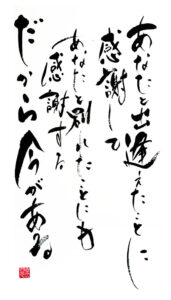 あなたと出逢えたことに
感謝して
あなたと別れたことにも
感謝する
だから今がある